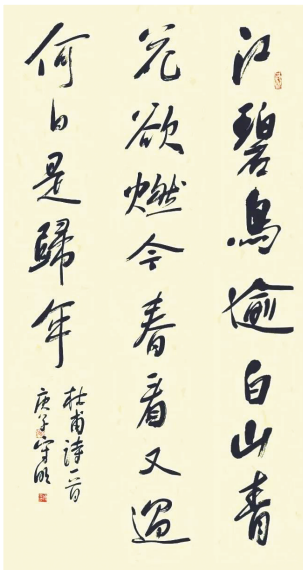 江碧鳥逾白山青
花欲燃今春看又過
何日是歸年
杜甫詩一首
庚子守明